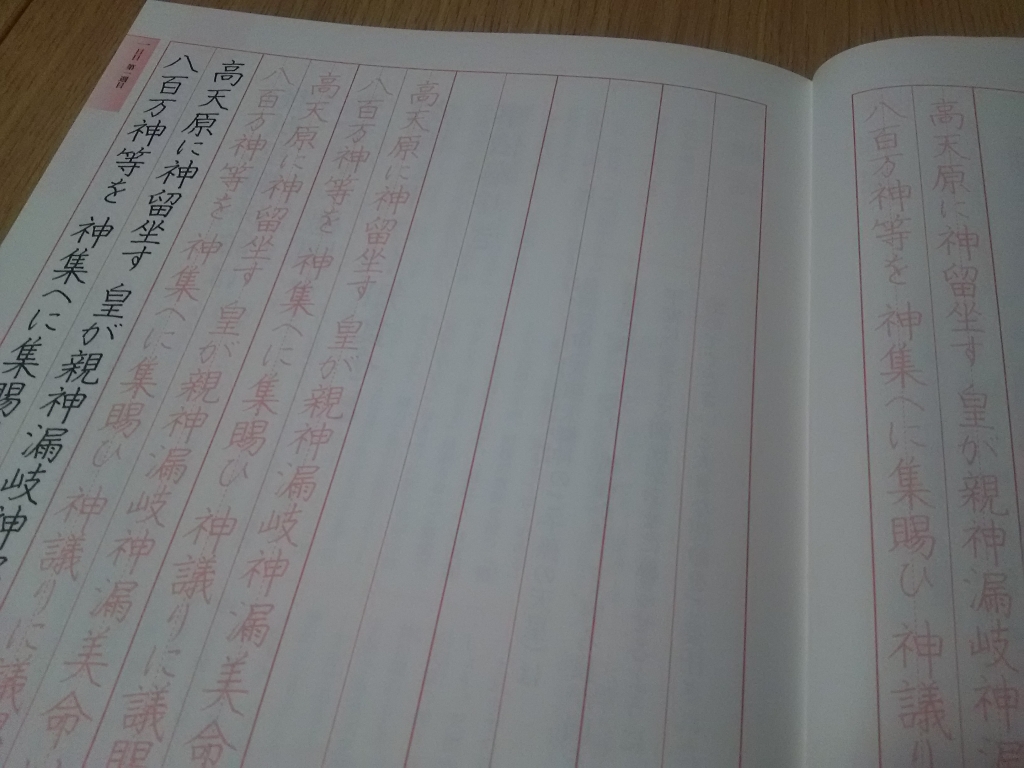 高天原に神留坐す 皇が親神漏岐神漏
八百万神等を 神集へに集賜ひ 神議り
高天原に神留坐す 皇が親神漏岐神漏美命
八百万神等を 神集へに集賜ひ 神議りに議賜
高天原に神留坐す 皇が親神漏岐神漏美命
八百万神等を 神集へに集賜ひ 神議りに議
高天原に神留坐す 皇が親神漏岐神
八百万神等を 神集へに集賜